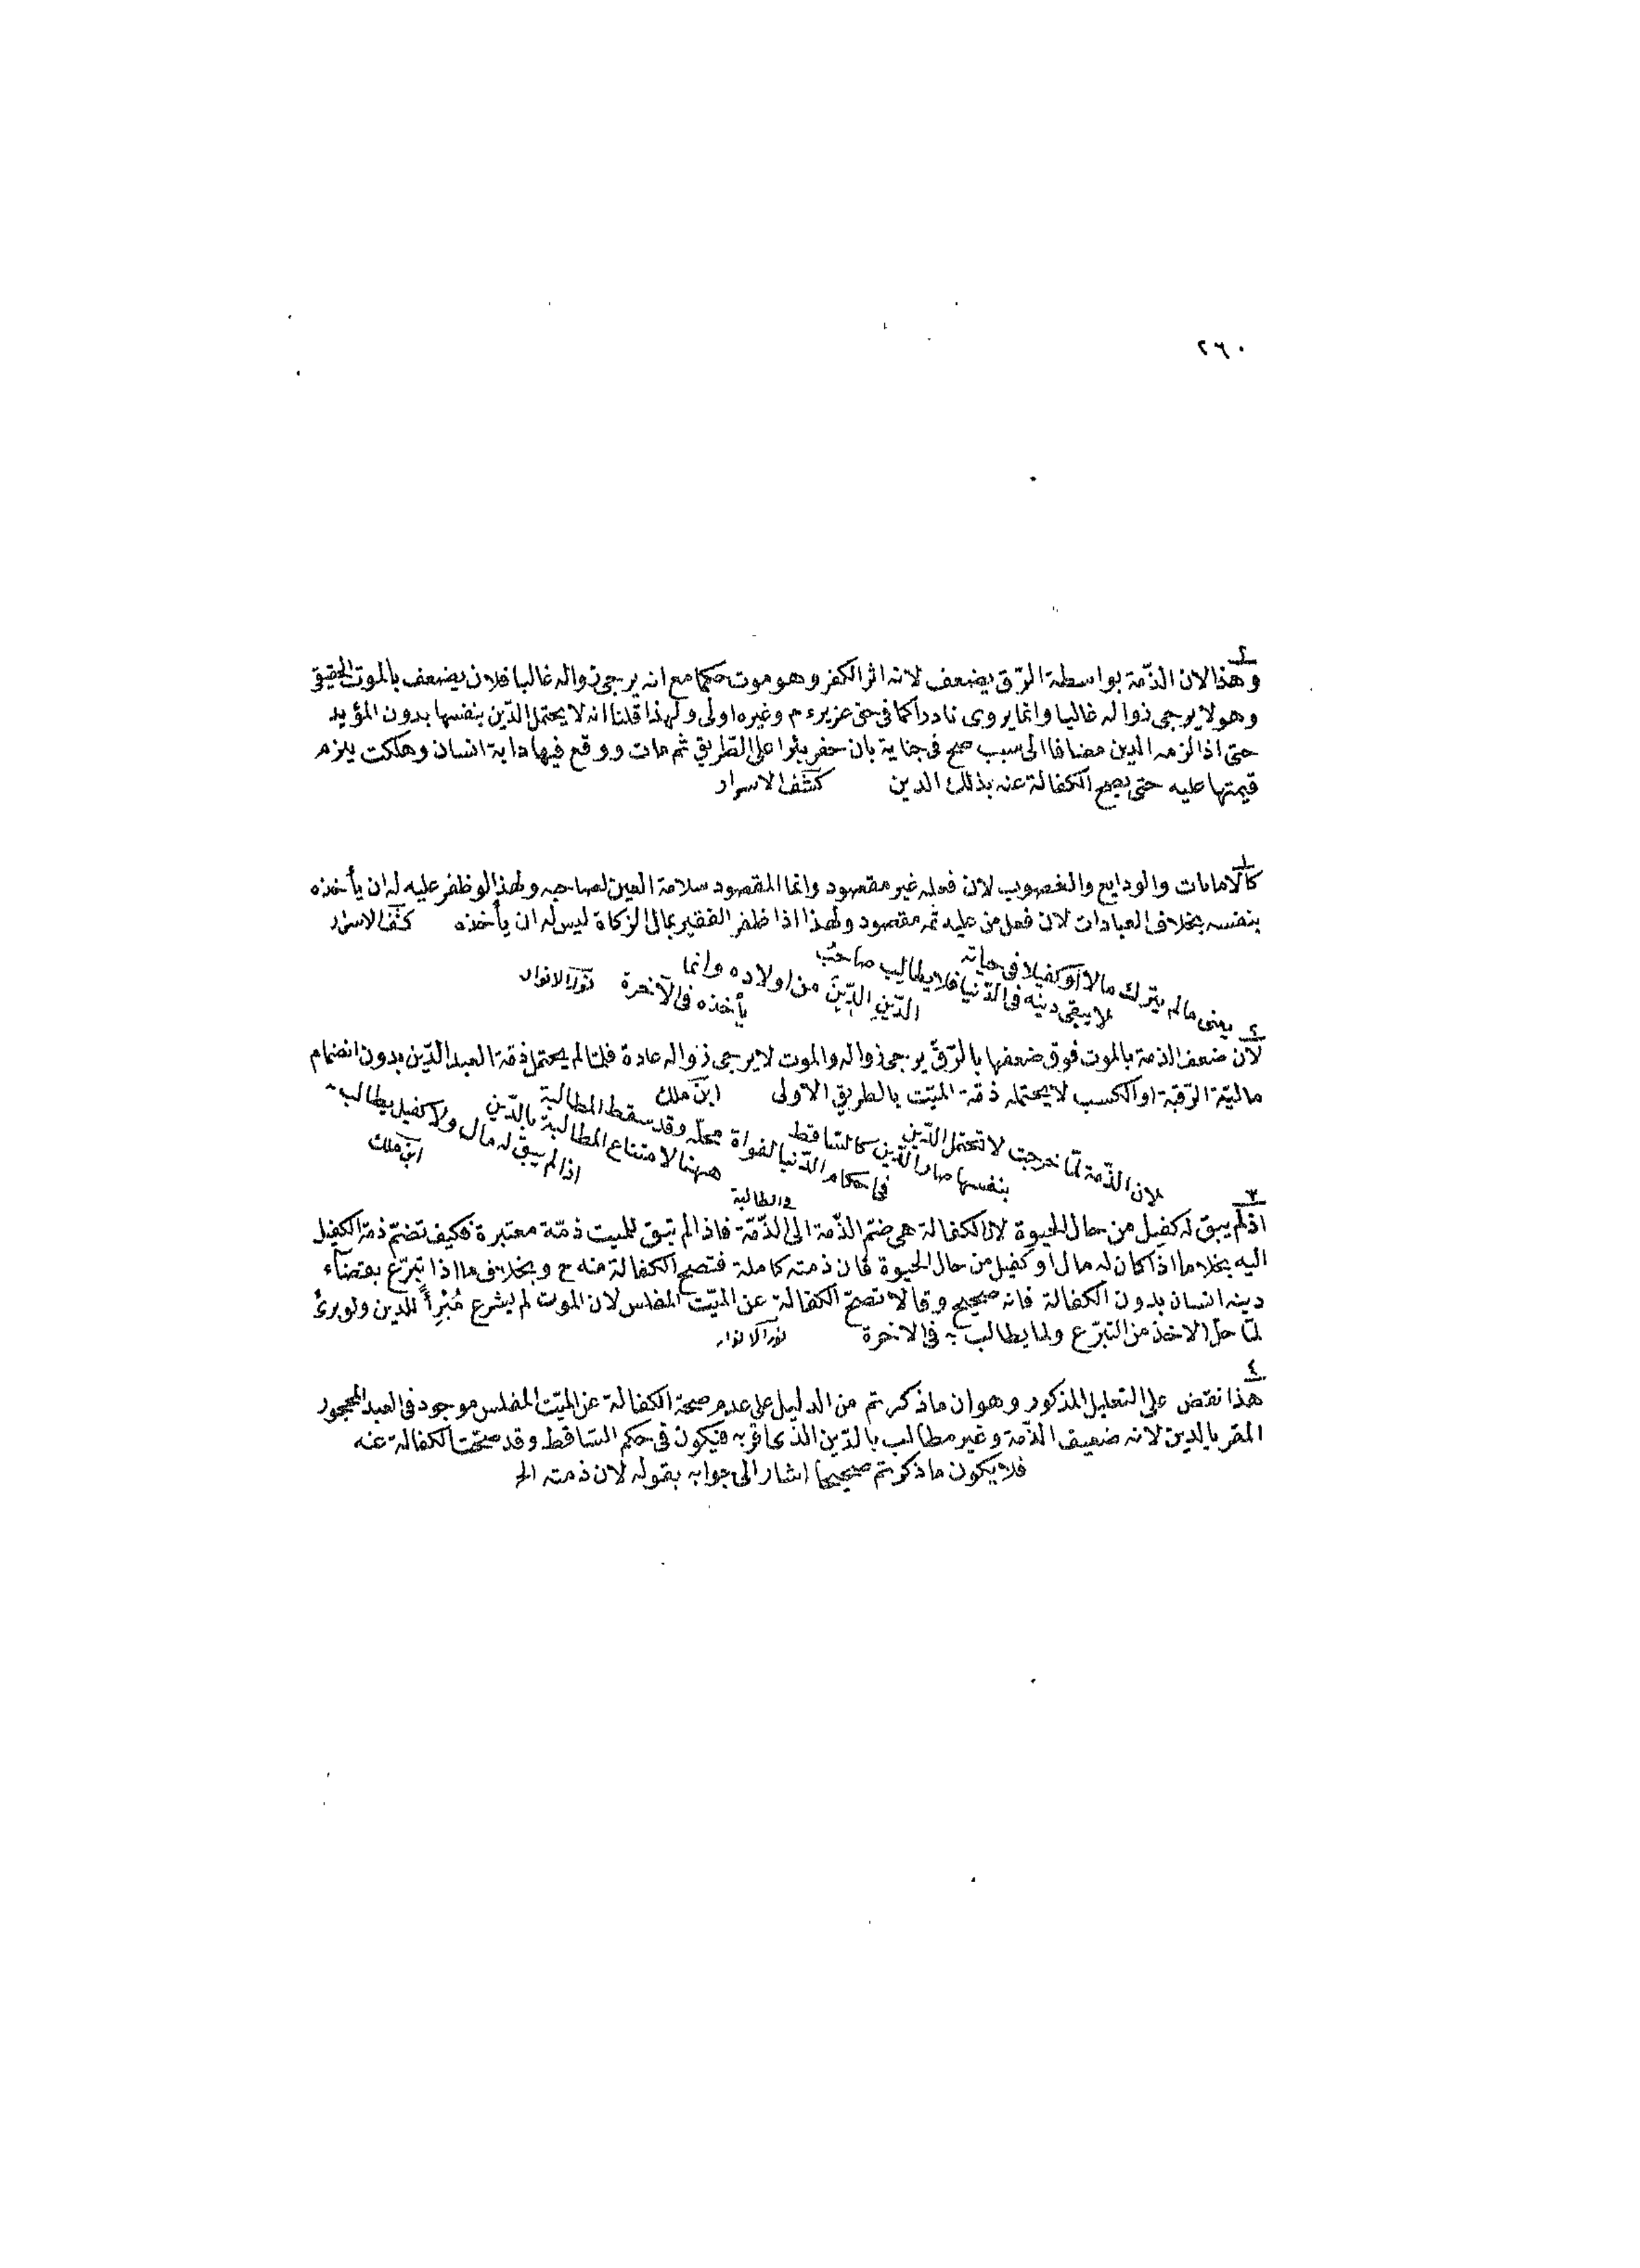 ٢٦٠
٢
وهذا لان الذمّة بواسطة الرّق يضعف لانه اثر الكفر وهو موت حكما مع انه يرجى زواله غالبا فلان يضعف بالموت الحقيقى
وهو لا يرجى زواله غالبا وانما يروى نادرا كما فى حق عزير ء م وغيره اولى ولهذا قلنا انه لا يحتمل الدّين بنفسها بدون المؤيد
حتى اذا لزمه الدين مضافا الى سبب صح فى جناية بان حفر بئرا على الطّريق ثم مات ووقع فيها دابة انسان وهلكت يلزم
قيمتها عليه حتى يصح الكفالة عنه بذلك الدين كشف الاسرار
١
كالامانات والودايع والغصوب لان فعله غير مقصود وانما المقصود سلامة العين لصاحبه ولهذا لو ظفر عليه له ان يأخذه
بنفسه بخلاف العبادات لان فعل من عليه ثمه مقصود ولهذا اذا ظفر الفقير بمال الزكاة ليس له ان يأخذه كشف الاسرار
يعنى مالم يترك مالا او كفيلا فى حياته
لا يبقى دينه فى الدّنيا فلا يطالب صاحب
الدّين الدّين من اولاده وانما
يأخذه فى الآخرة نور الانوار
٢
لان ضعف الذمة بالموت فوق ضعفها بالرّق يرجى زواله والموت لا يرجى زواله عادة فلمّا لم يحتمل ذمّة العبد الدّين بدون انضمام
ماليّة الرّقبة او الكسب لا يحتمله ذمّة الميّت بالطريق الاولى ابن ملك
لان الذّمة لمّا خرجت لا تحتمل الدّين
بنفسها صار الدّين كالسّاقط
فى احكام الدّنيا لفوات محلّه وقد سقط المطالبة
ههنا لامتناع المطالبة بالدّين
اذا لم يبق له مال ولا كفيل يطالب
ابن ملك
فى المطالبة
٣
اذ لم يبق له كفيل من حال الحيوة لان الكفالة هى ضمّ الذّمة الى الذّمّة فاذا لم تبق للميت ذمّة معتبرة فكيف تضمّ ذمّة الكفيل
اليه بخلاف ما اذا كان له مال او كفيل من حال الحيوة فان ذمته كاملة فتصح الكفالة منه ح وبخلاف ما اذا تبرّع بقضاء
دينه انسان بدون الكفالة فانه صحيح وقالا تصحّ الكفالة عن الميّت المفلس لان الموت لم يشرع مُبْرِأً للدين ولو برئ
لمّا حلّ الاخذ من التبرّع ولما يطالب به فى الاخرة نور الانوار
٤
هذا نقض على التعليل المذكور وهو ان ما ذكرتم من الدليل على عدم صحة الكفالة عن الميّت المفلس موجود فى العبد المحجور
المقر بالدين لانه ضعيف الذّمة وغير مطالب بالدّين الذى اقرّ به فيكون فى حكم السّاقط وقد صحّت الكفالة عنه
فلا يكون ما ذكرتم صحيحا اشار الى جوابه بقوله لان ذمته الخ